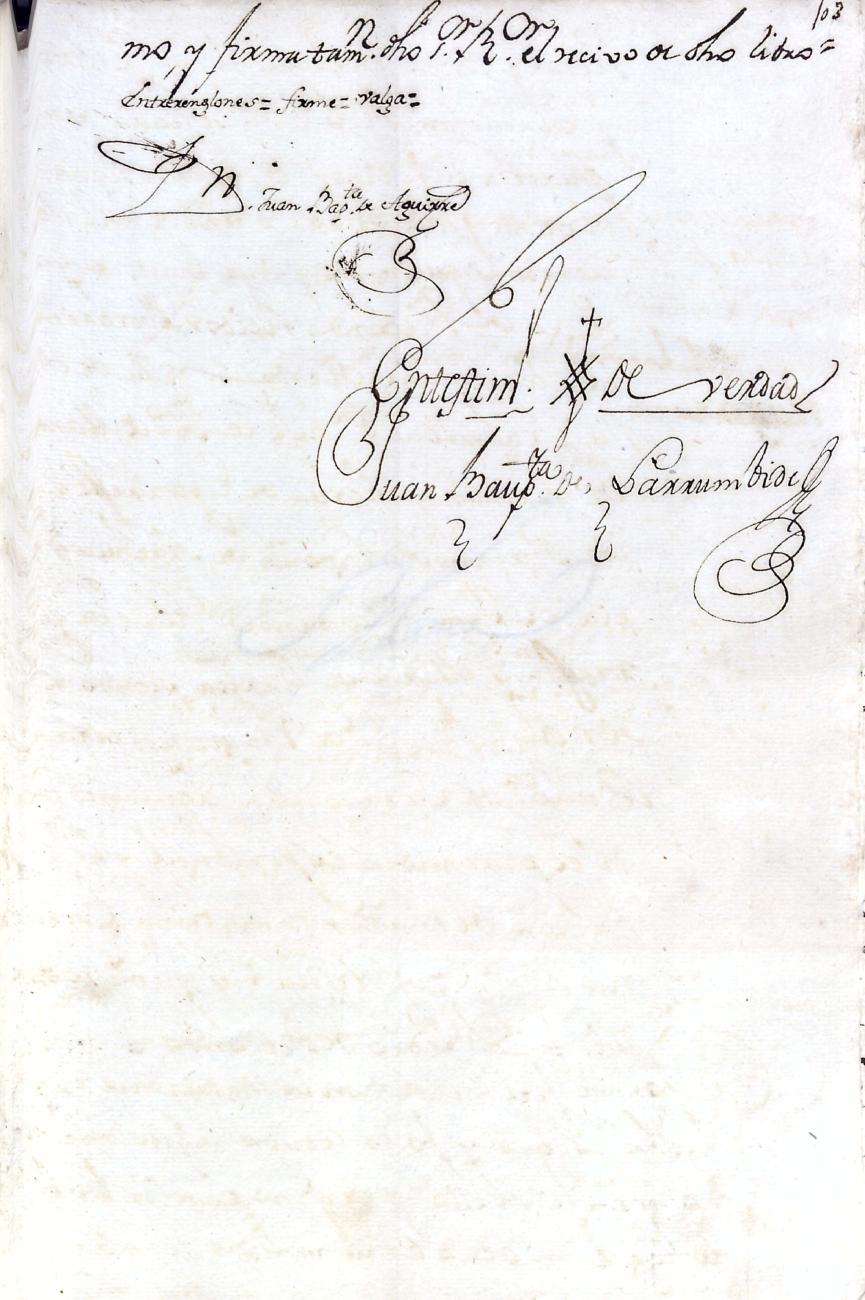 103
mo, y firma tamn. dho Sor. Ror. el recivo de dho libro=
Entrerenglones= firme= valga=
Dn. Juan Bapta. de Aguirre
En testim. de verdad
Juan Baupta. de Larrumbide